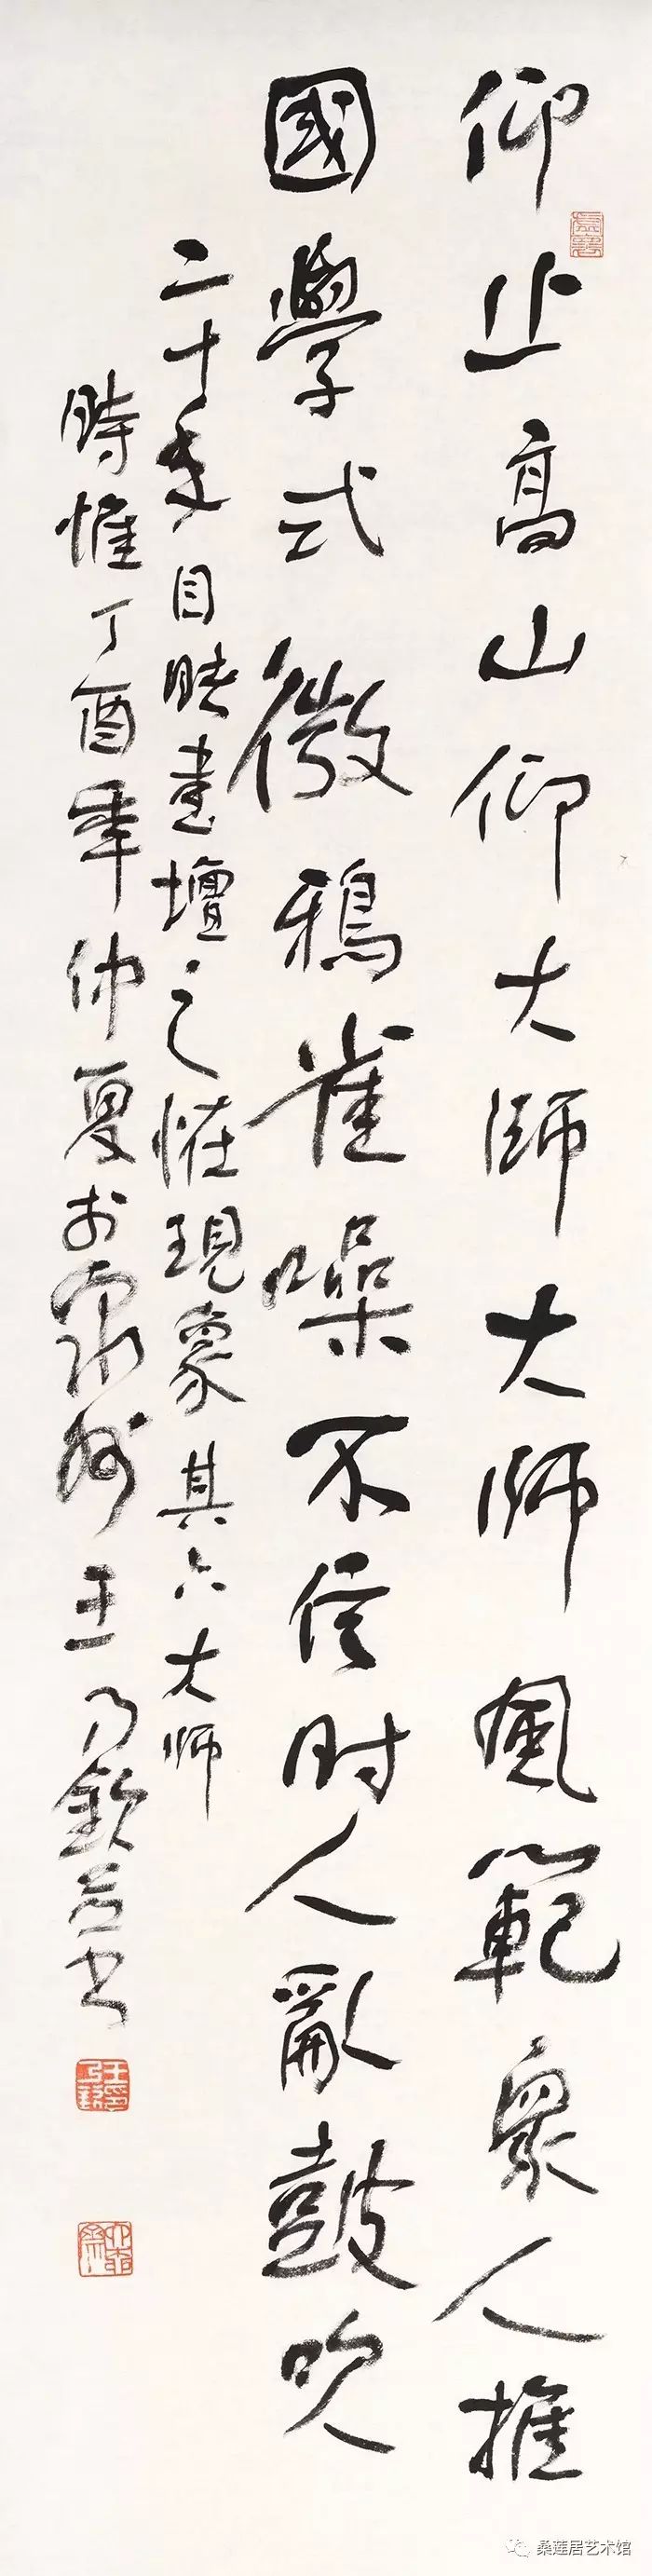 仰止高山仰大師大師風範衆人推
國學式微鴉雀噪不信時人亂鼓吹
二十年目睹書壇之怪現象其六大師
時惟丁酉年仲夏於泉州王乃欽并書
桑莲居艺术馆